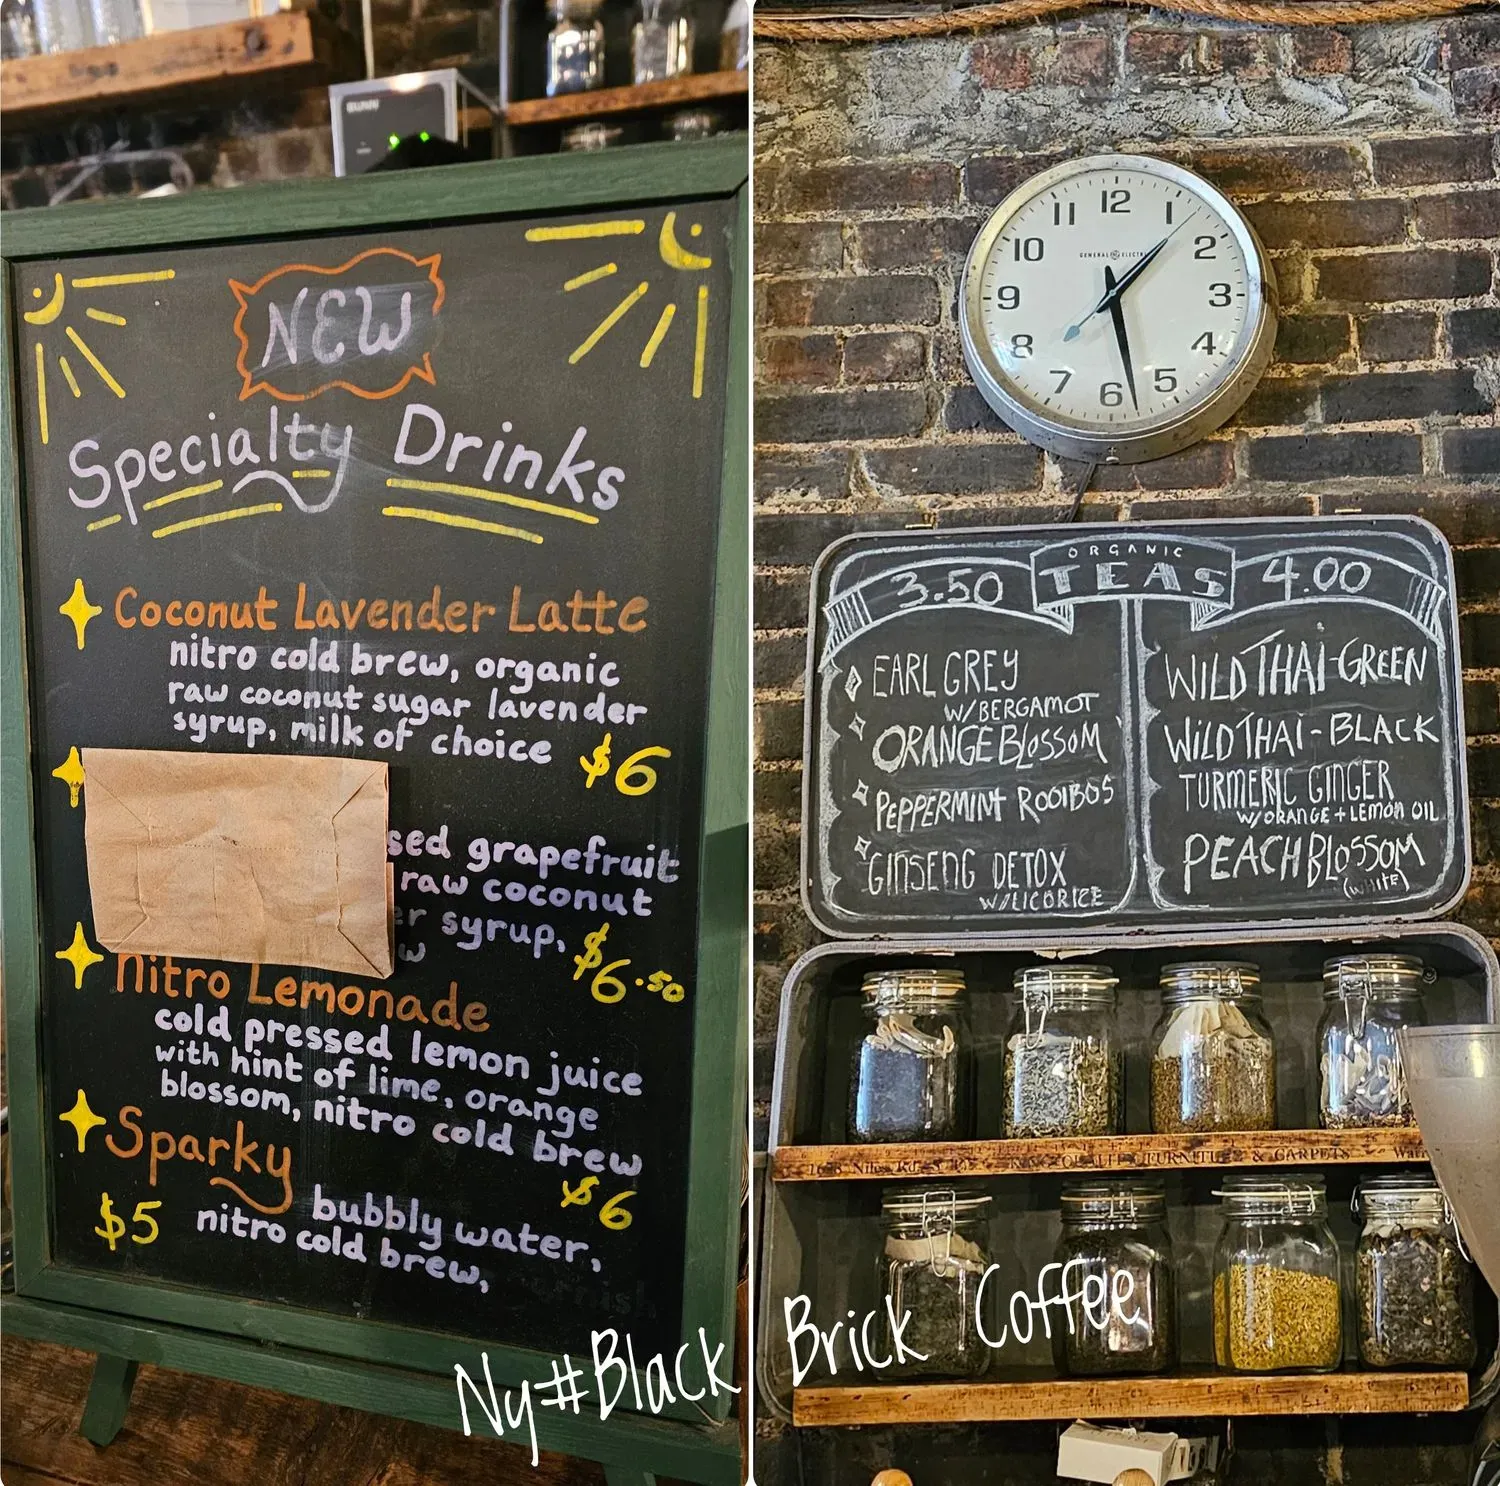 BUNN
NEW
Specialty Drinks
Coconut Lavender Latte
nitro cold brew, organic
raw coconut sugar lavender
syrup, milk of choice
$6
sed grapefruit
raw coconut
er syrup,
w
$6.50
Nitro Lemonade
cold pressed lemon juice
with hint of lime, orange
blossom, nitro cold brew
$6
Sparky
$5
bubbly water,
nitro cold brew,
Ny#Black Brick Coffee
12
1
2
3
4
5
6
7
8
9
10
11
GENERAL ELECTRIC
ORGANIC
TEAS
3.50
EARL GREY
W/BERGAMOT
ORANGE BLOSSOM
PEPPERMINT ROOIBOS
GINSENG DETOX
W/LICORICE
4.00
WILD THAI-GREEN
WILD THAI-BLACK
TURMERIC GINGER
W/ORANGE + LEMON OIL
PEACH BLOSSOM
(WHITE)
QUALITY FURNITURE & CARPETS